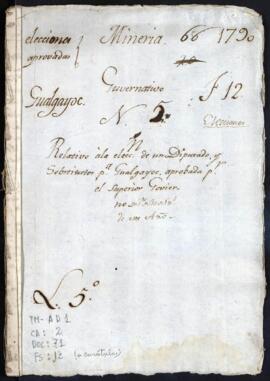 elecciones
aprovadas
Mineria. 66 1790
Gualgayoc.
Guvernativo
F 12
N. 5.
Elecciones
Relativo à la elecc.n de un Diputado, y
Sobstitutos p.a Gualgayoc, aprobada p.r
el Superior Govier
no
de este Año.
L. 5.o
TM-AD1
CA: 2
DOC: 71
FS: 12 (a carátula)